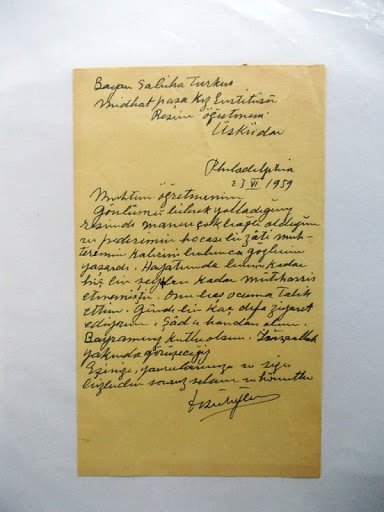 Bayan Saliha Turkus
Midhat paşa Kız Enstitüsü
Resim öğretmeni
Üsküdar
Philadelphia
23 VI 1959
Muhterem öğretmenim
Gönlümü bilerek yolladığınız
resimde manen çok bağlı olduğum
ve pederimin hocası bir zâtı muh-
teremin kabrini bulunca gözlerim
yaşardı. Hayatımda bunun kadar
hiç bir şey kadar mütehassis
etmemişti. Onu baş ucuma talik
ettim. Günde bir kaç defa ziyaret
ediyorum, şâd u handan olun.
Bayramınız kutlu olsun. İnşaallah
yakında görüşeceğiz
Eşinize, yavrularınıza ve size
bizlerden sonsuz selam ve hürmetler